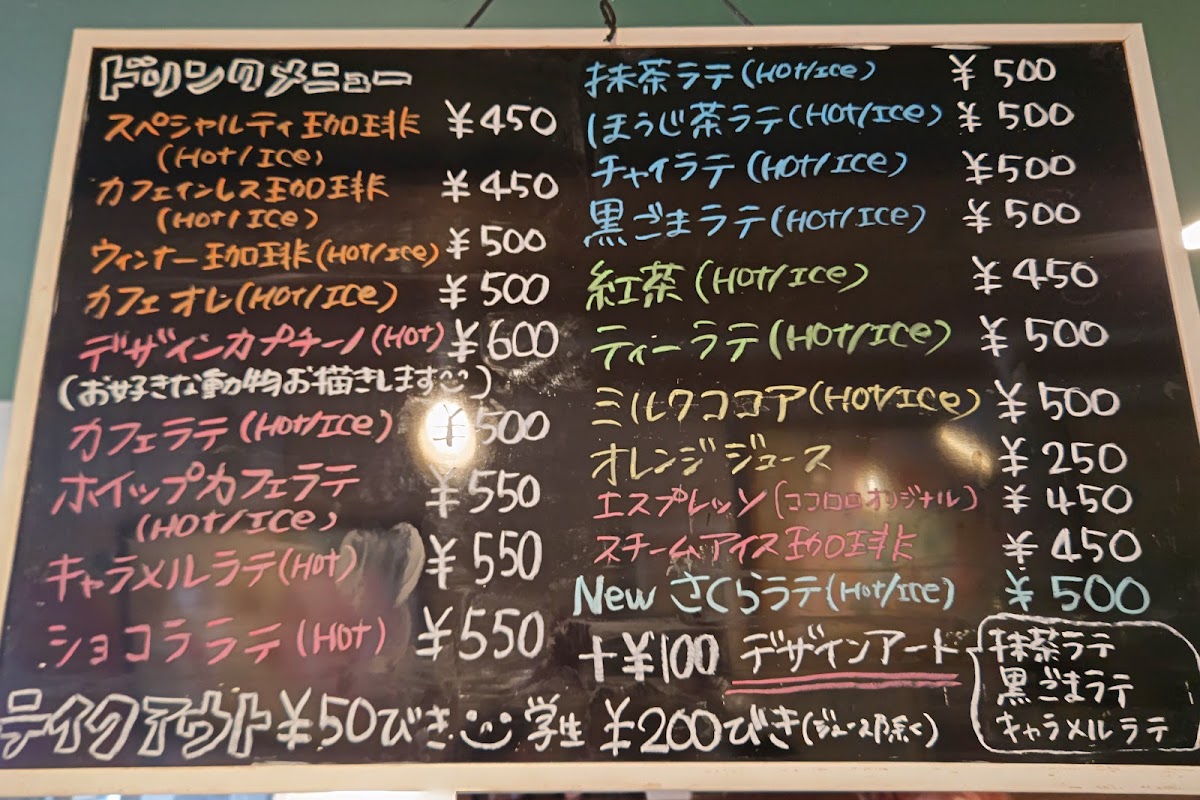 ドリンクメニュー
スペシャルティ珈琲 ¥450
(Hot/Ice)
カフェインレス珈琲 ¥450
(Hot/Ice)
ウィンナー珈琲(Hot/Ice) ¥500
カフェオレ(Hot/Ice) ¥500
デザインカプチーノ(Hot) ¥600
(お好きな動物お描きします)
カフェラテ(Hot/Ice) ¥500
ホイップカフェラテ ¥550
(Hot/Ice)
キャラメルラテ(Hot) ¥550
ショコララテ(Hot) ¥550
抹茶ラテ(Hot/Ice) ¥500
ほうじ茶ラテ(Hot/Ice) ¥500
チャイラテ(Hot/Ice) ¥500
黒ごまラテ(Hot/Ice) ¥500
紅茶(Hot/Ice) ¥450
ティーラテ(Hot/Ice) ¥500
ミルクココア(Hot/Ice) ¥500
オレンジジュース ¥250
エスプレッソ(ココロロオリジナル) ¥450
スチームアイス珈琲 ¥450
New さくらラテ(Hot/Ice) ¥500
+¥100 デザインアート
抹茶ラテ
黒ごまラテ
キャラメルラテ
テイクアウト¥50びき 学生 ¥200びき(ジュース除く)